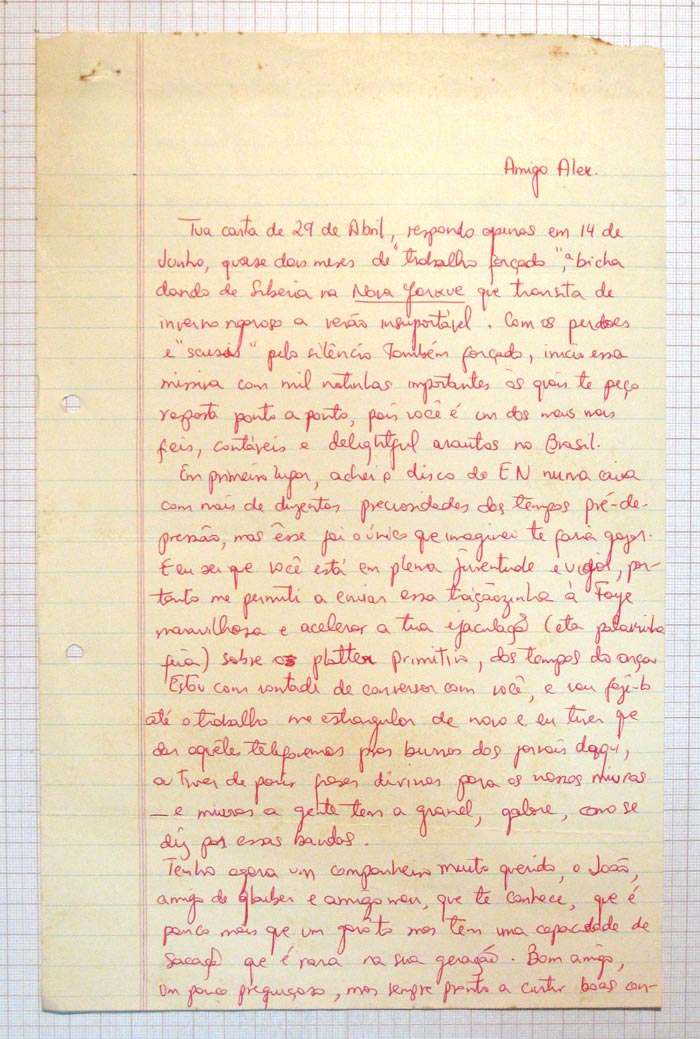 Amigo Alex.
Tua carta de 29 de Abril, respondo apenas em 14 de
Junho, quase dois meses de "trabalho forçado", a bicha
dando de Siberia na Nova Yorque que transita de
inverno rigoroso a verão insuportável. Com os perdões
e "scusas" pelo silêncio também forçado, inicio essa
missiva com mil notinhas importantes às quais te peço
resposta ponto a ponto, pois você é um dos meus mais
fieis, contáveis e delightful arautos no Brasil.
Em primeiro lugar, achei o disco do EN numa caixa
com mais de duzentas preciosidades dos tempos pré-de-
pressão, mas êsse foi o único que imaginei te faria gozar.
E eu sei que você está em plena juventude e vigor, por-
tanto me permiti a enviar essa traiçãozinha à Faye
maravilhosa e acelerar a tua ejaculação (eta palavrinha
feia) sobre platter primitivo, dos tempos do onça
Estou com vontade de conversar com você, e vou fazê-lo
até o trabalho me estrangular de novo e eu tiver que
dar aquêles telefonemas pros burros dos jornais daqui,
ou tiver de parir frases divinas para os nossos miuras
— e miuras a gente tem a granel, galore, como se
diz por essas bandas.
Tenho agora um companheiro muito querido, o João,
amigo de Glauber e amigo meu, que te conhece, que é
pouco mais que um garôto mas tem uma capacidade de
sacação que é rara na sua geração. Bom amigo,
um pouco preguiçoso, mas sempre pronto a curtir boas con-